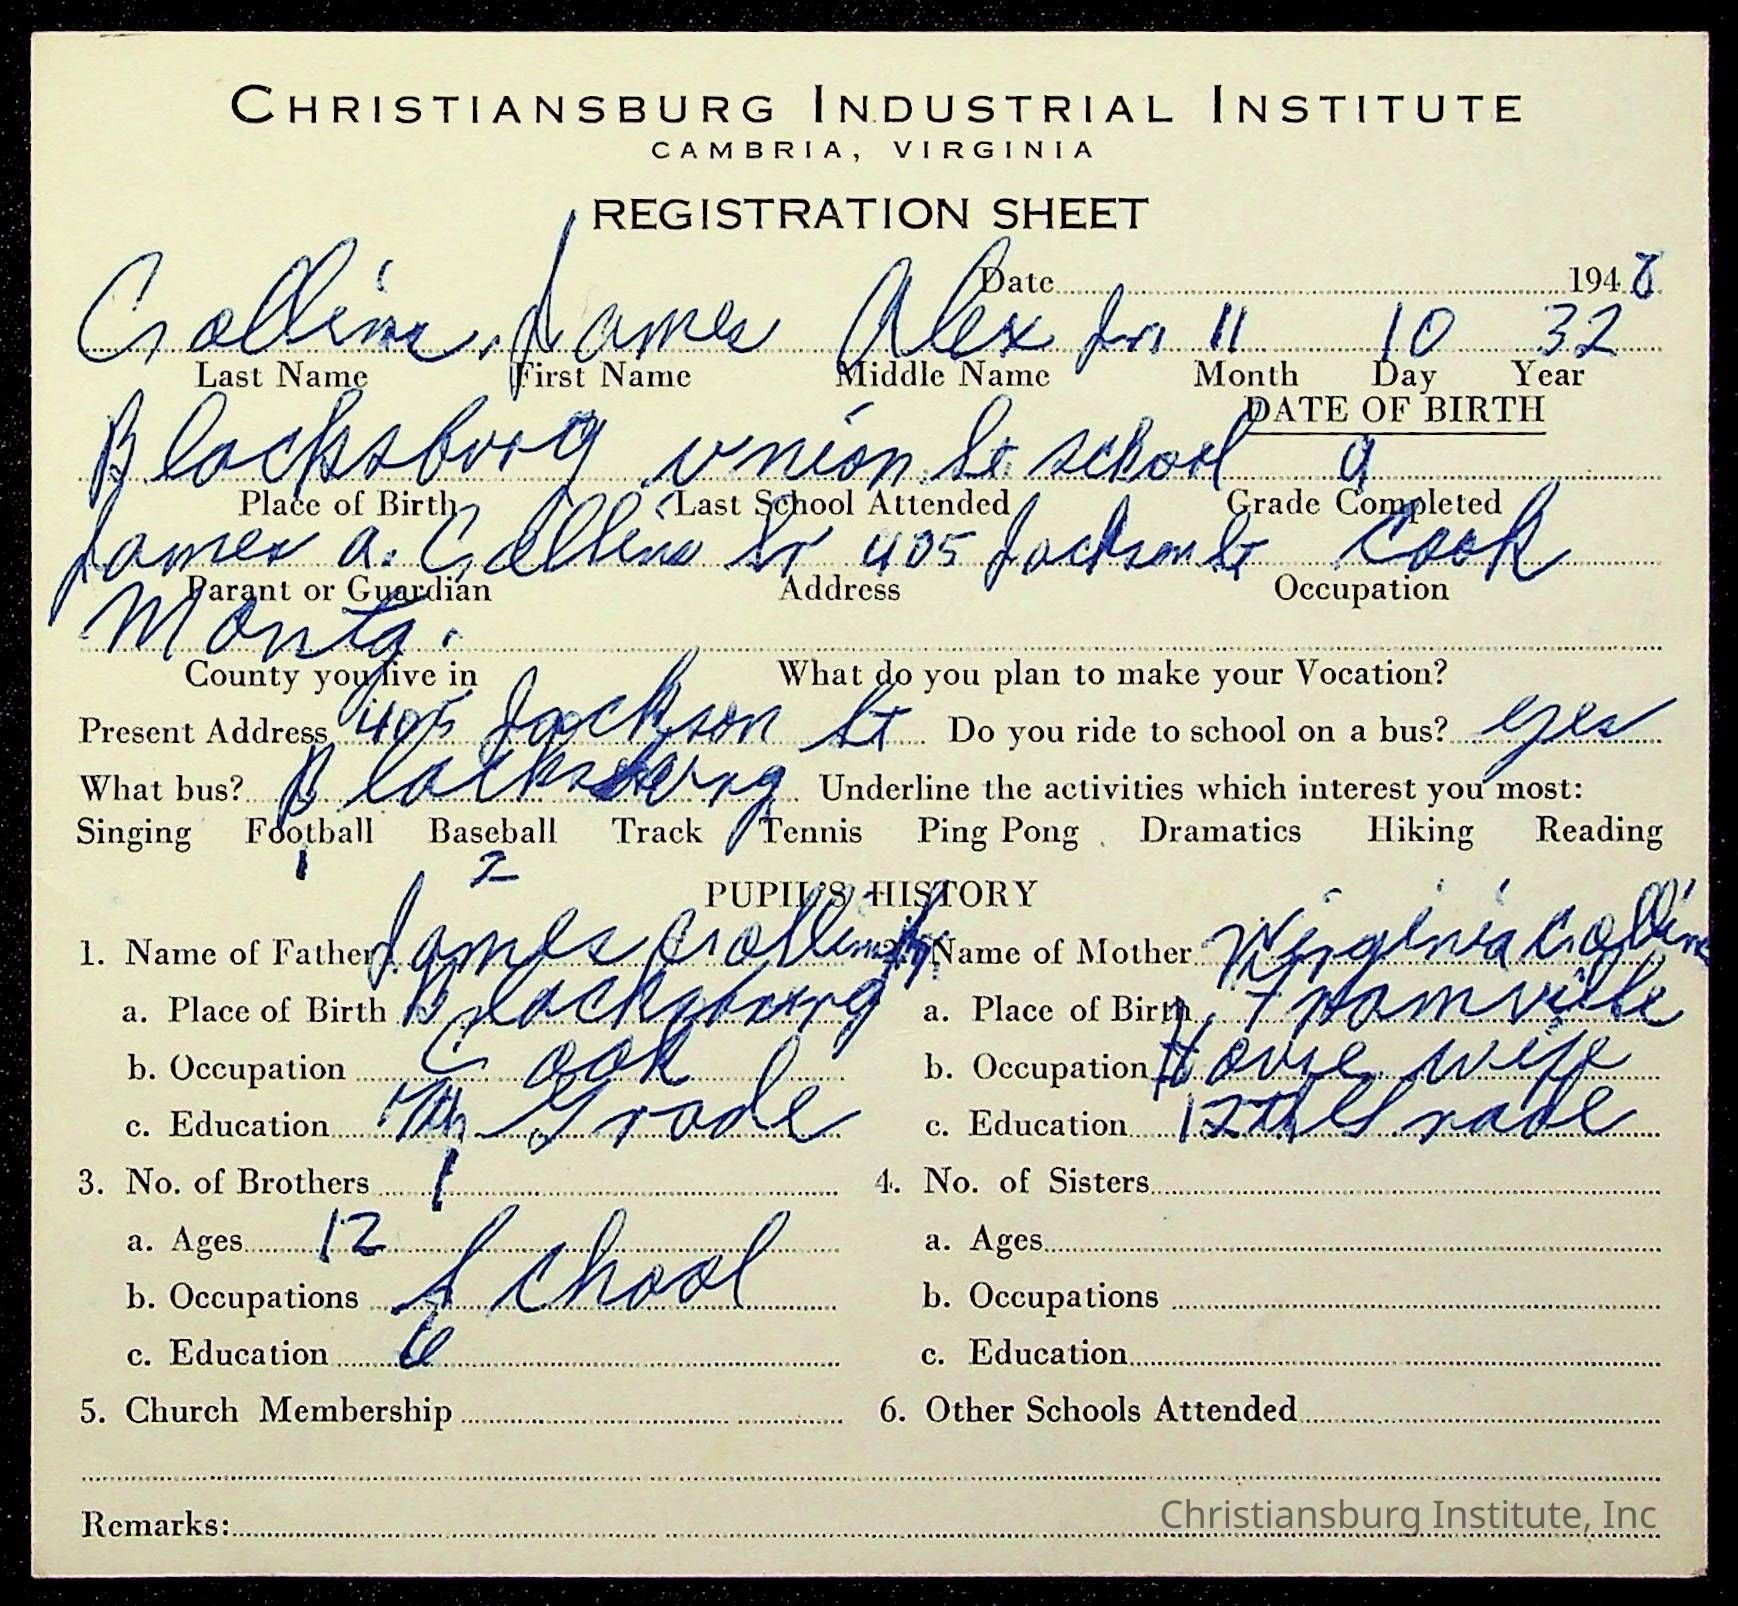 CHRISTIANSBURG INDUSTRIAL INSTITUTE
CAMBRIA, VIRGINIA
REGISTRATION SHEET
Date 1948
Collins, James Alex Jr. 11 10 32
Last Name First Name Middle Name Month Day Year
DATE OF BIRTH
Blacksburg union St school 9
Place of Birth Last School Attended Grade Completed
James a. Collins Sr 405 Jackson St Cook
Parant or Guardian Address Occupation
Montg.
County you live in What do you plan to make your Vocation?
Present Address 405 Jackson St Do you ride to school on a bus? yes
What bus? Blacksburg Underline the activities which interest you most:
Singing Football Baseball Track Tennis Ping Pong Dramatics Hiking Reading
1 2
PUPIL'S HISTORY
1. Name of Father James Collins 2. Name of Mother Virginia Collins
a. Place of Birth Blacksburg a. Place of Birth
b. Occupation Cook b. Occupation House wife
c. Education 7th Grade c. Education 12th Grade
3. No. of Brothers 1 4. No. of Sisters
a. Ages 12 a. Ages
b. Occupations School b. Occupations
c. Education 6 c. Education
5. Church Membership 6. Other Schools Attended
Remarks:
Christiansburg Institute, Inc